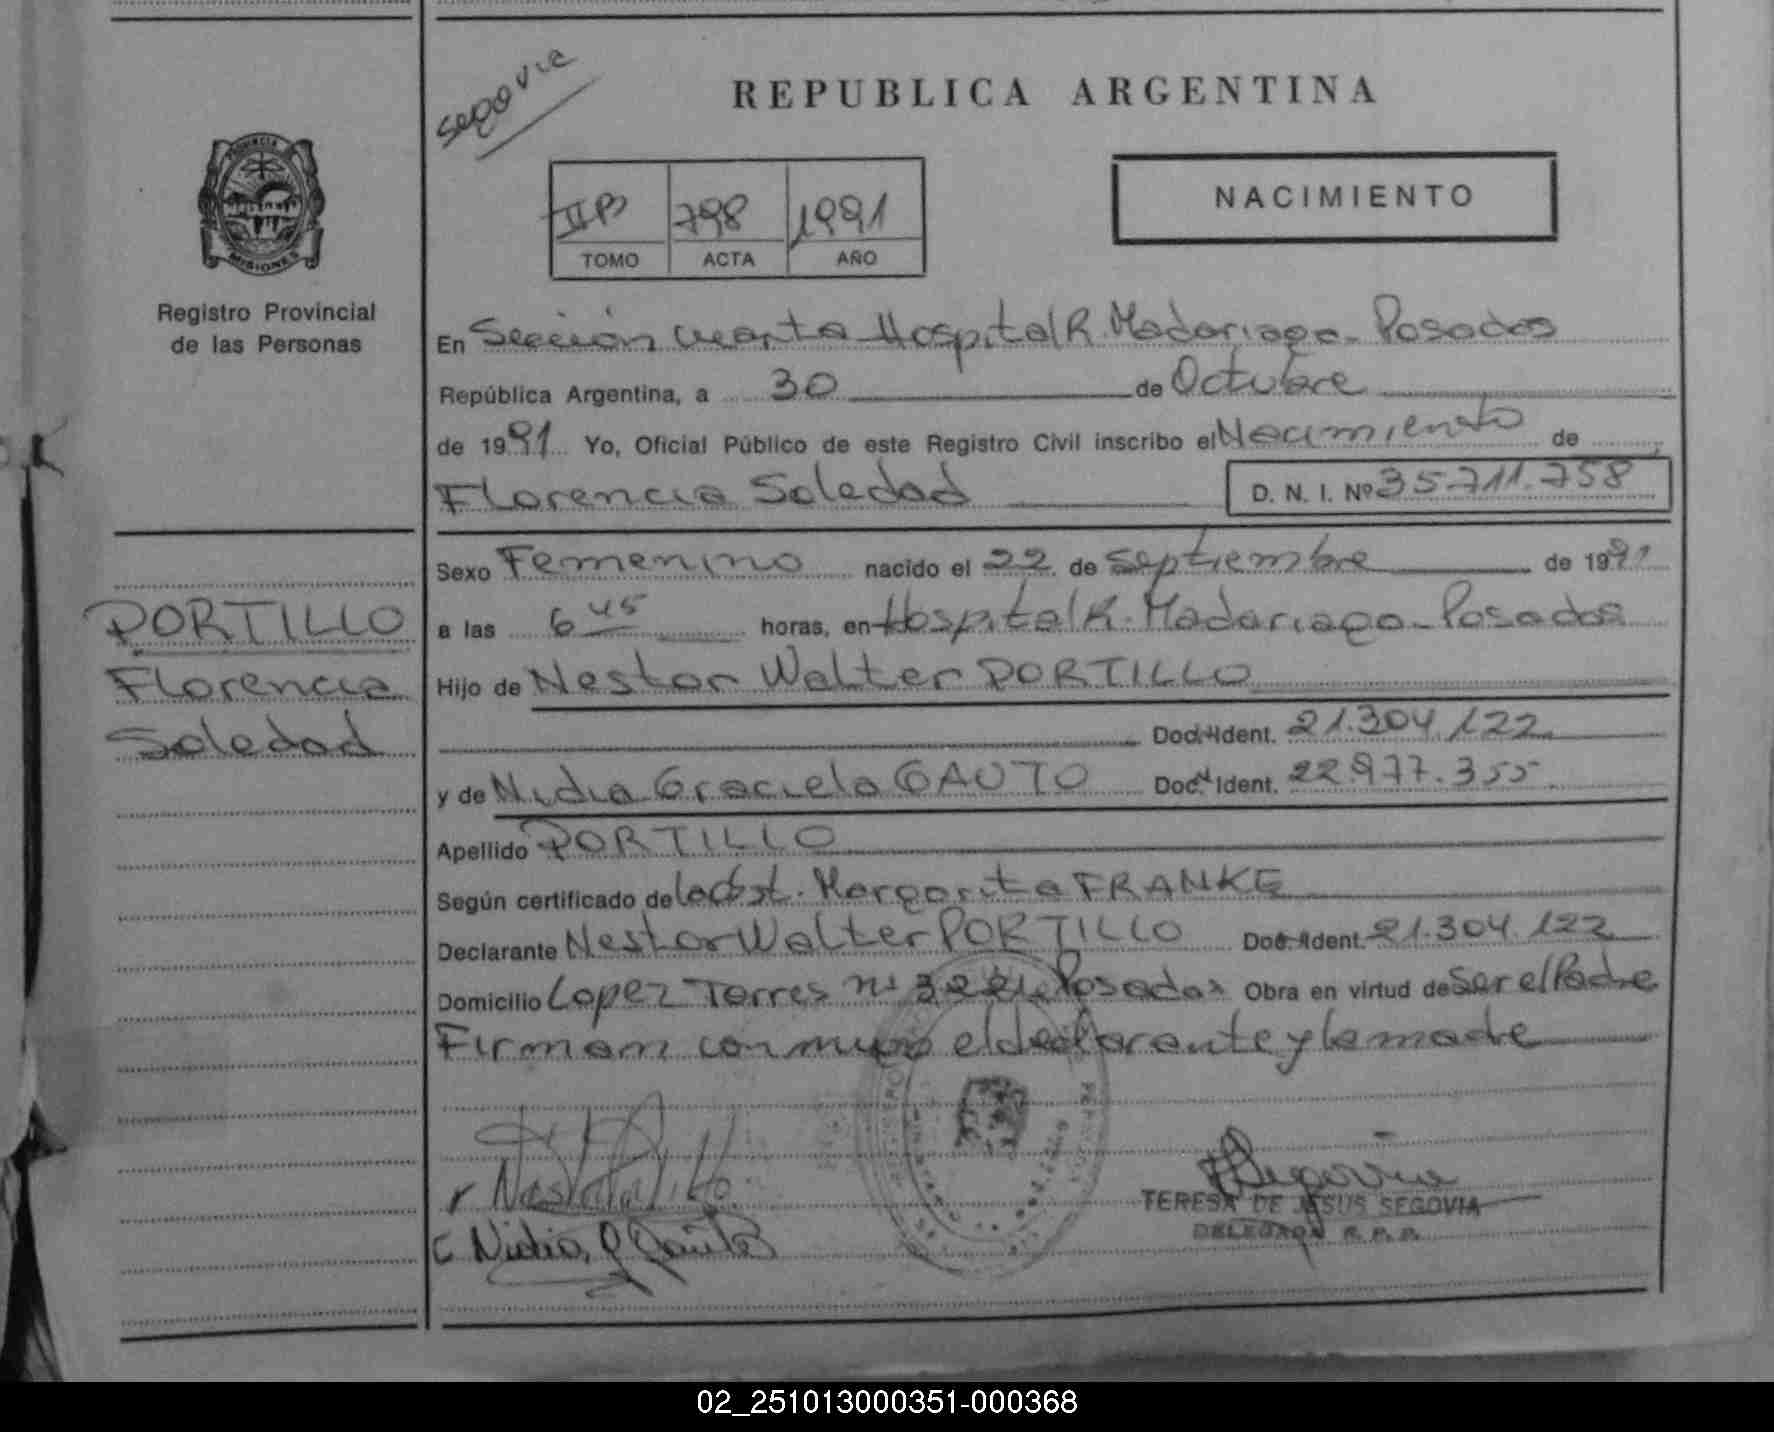 Segovia
REPUBLICA ARGENTINA
NACIMIENTO
PROVINCIA
MISIONES
Registro Provincial
de las Personas
II B 798 1991
TOMO ACTA AÑO
En Sección cuarta Hospital R. Madariaga - Posadas
República Argentina, a 30 de Octubre
de 1991 Yo, Oficial Público de este Registro Civil inscribo el Nacimiento de
Florencia Soledad D. N. I. Nº 35.711.758
Sexo Femenino nacido el 22 de Septiembre de 1991
a las 6 45 horas, en Hospital R. Madariaga - Posadas
Hijo de Nestor Walter PORTILLO
Doc. Ident. 21.304.122
y de Nidia Graciela GAUTO Doc. Ident. 22.977.355
Apellido PORTILLO
Según certificado de la obst. Margarita FRANKE
Declarante Nestor Walter PORTILLO Doc. Ident. 21.304.122
Domicilio Lopez Torres nº 3221 Posadas Obra en virtud de Ser el Padre
Firman con migo el declarante y la madre
PORTILLO
Florencia
Soledad
Segovia
TERESA DE JESUS SEGOVIA
DELEGADA R. P. P.
Nidia G Gauto
02_251013000351-000368